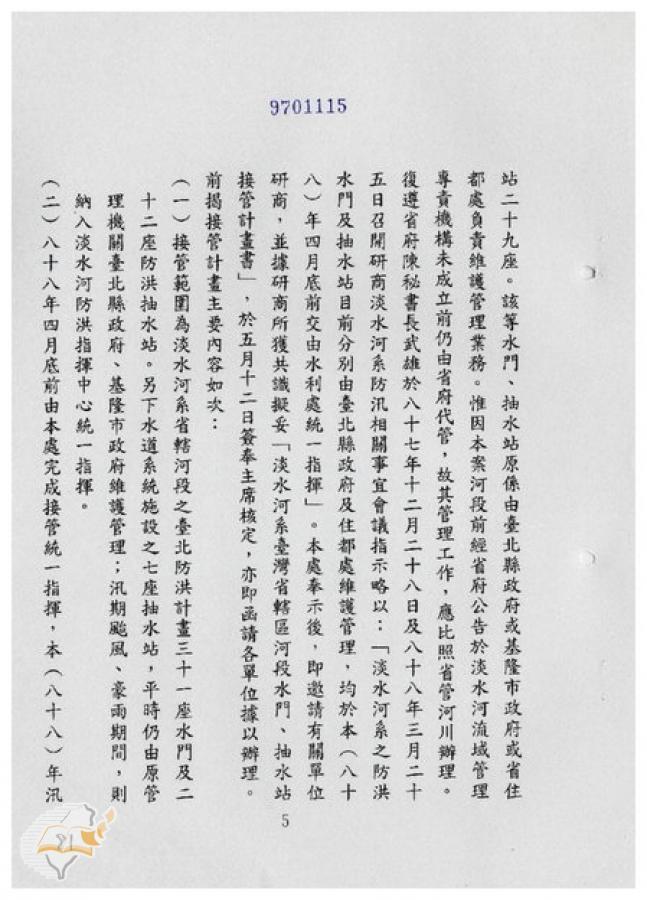 9701115
站二十九座。該等水門、抽水站原係由臺北縣政府或基隆市政府或省住
都處負責維護管理業務。惟因本案河段前經省府公告於淡水河流域管理
專責機構未成立前仍由省府代管，故其管理工作，應比照省管河川辦理。
復遵省府陳秘書長武雄於八十七年十二月二十八日及八十八年三月二十
五日召開研商淡水河系防汛相關事宜會議指示略以：「淡水河系之防洪
水門及抽水站目前分別由臺北縣政府及住都處維護管理，均於本（八十
八）年四月底前交由水利處統一指揮」。本處奉示後，即邀請有關單位
研商，並據研商所獲共識擬妥「淡水河系臺灣省轄區河段水門、抽水站
接管計畫書」，於五月十二日簽奉主席核定，亦即函請各單位據以辦理。
前揭接管計畫主要內容如次：
（一）接管範圍為淡水河系省轄河段之臺北防洪計畫三十一座水門及二
十二座防洪抽水站。另下水道系統施設之七座抽水站，平時仍由原管
理機關臺北縣政府、基隆市政府維護管理；汛期颱風、豪雨期間，則
納入淡水河防洪指揮中心統一指揮。
（二）八十八年四月底前由本處完成接管統一指揮，本（八十八）年汛
5